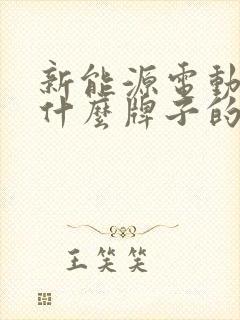 新能源電動
什麼牌子的
王笑笑